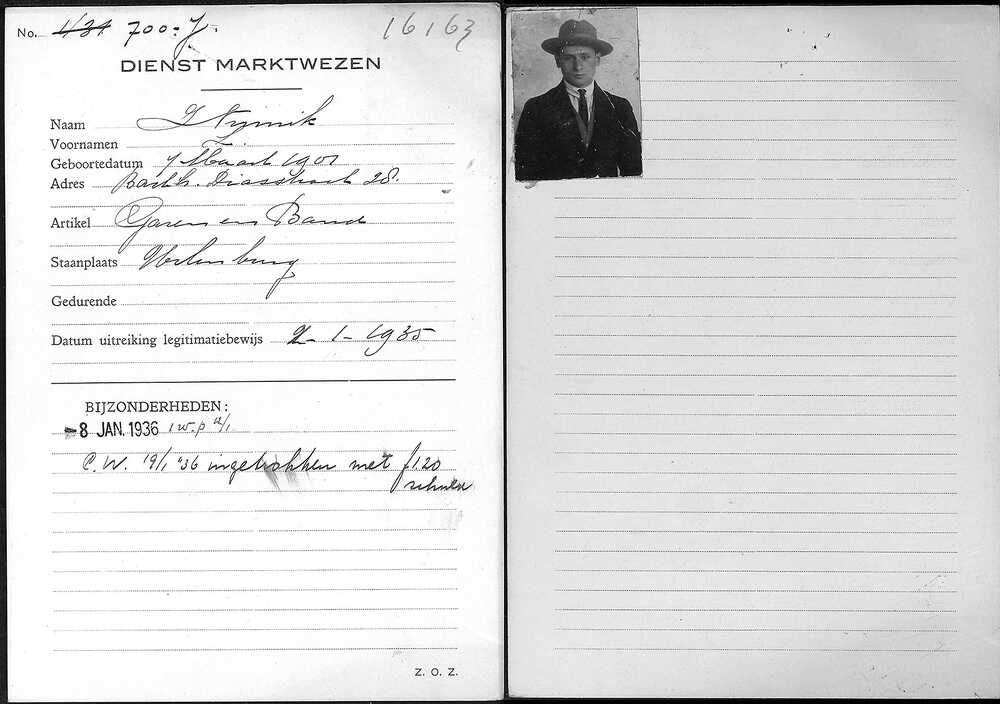 No. 1131 700-J. 16163
DIENST MARKTWEZEN
Naam I Nijmik
Voornamen
Geboortedatum 7 Maart 1901
Adres Barth. Diasstraat 28.
Artikel Garen en Band
Staanplaats Uilenburg
Gedurende
Datum uitreiking legitimatiebewijs 2-1-1935
BIJZONDERHEDEN:
-8 JAN. 1936 i w.p
C.W. 19/1 '36 ingetrokken met f 1.20
schuld
Z. O. Z.